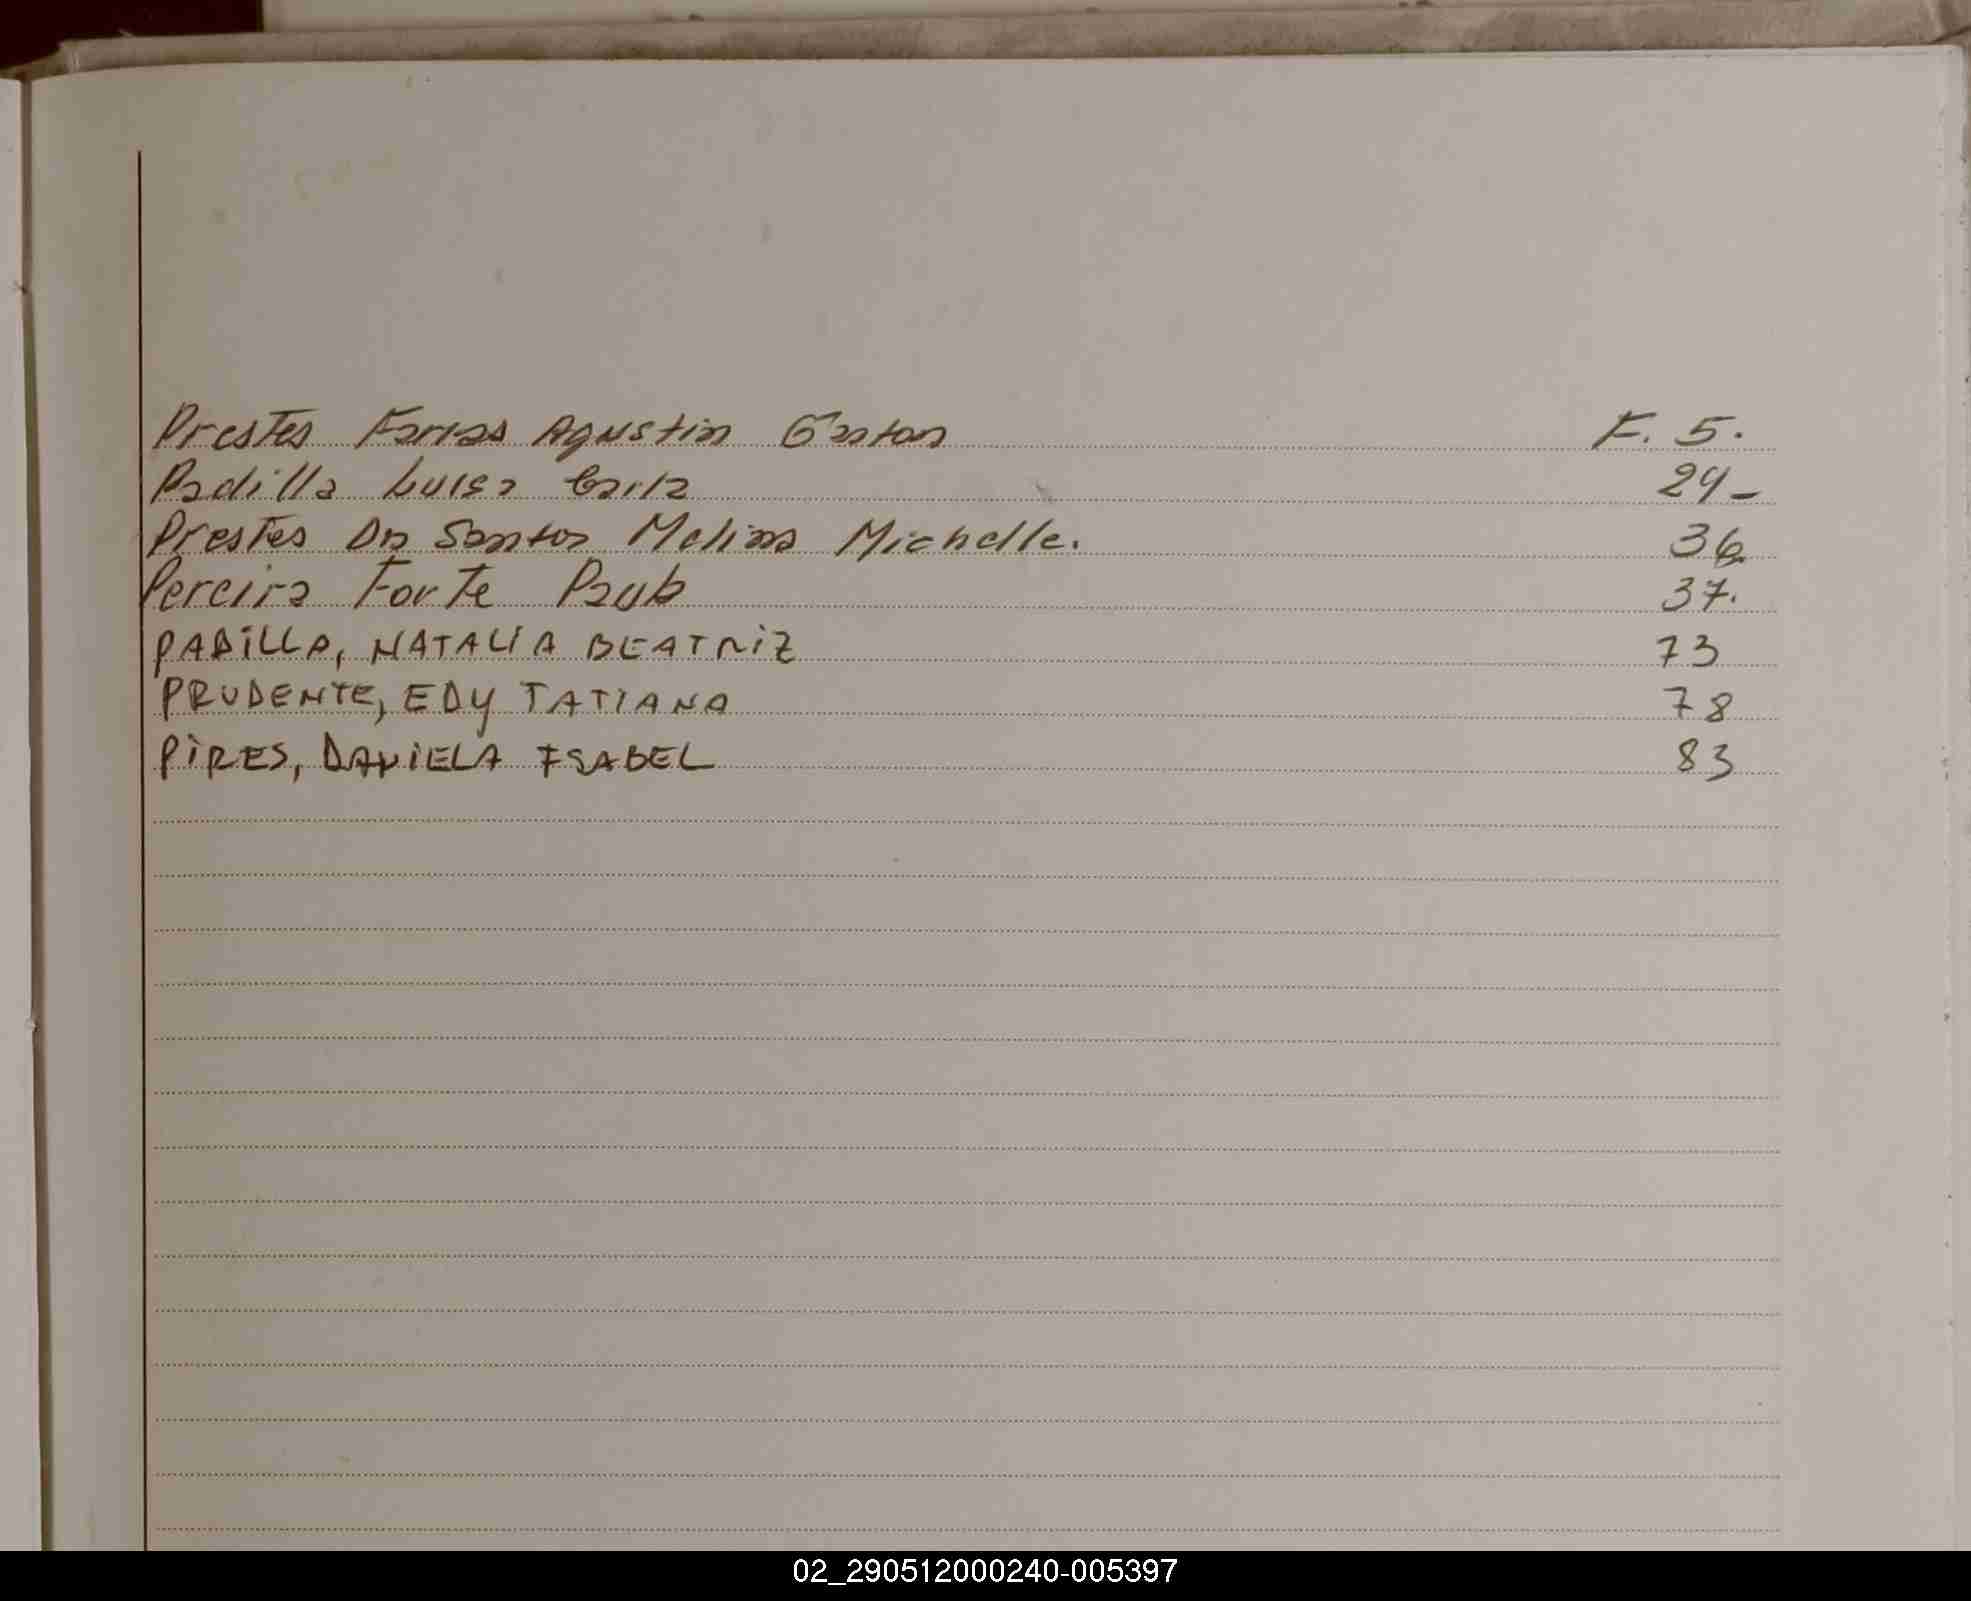 Prestes Farias Agustin Gaston F. 5.
Padilla Luisa Carla 29-
Prestes Da Santos Melina Michelle. 36.
Pereira Forte Paula 37.
PADILLA, NATALIA BEATRIZ 73
PRUDENTE, EDY TATIANA 78
PIRES, DANIELA ISABEL 83
02_290512000240-005397